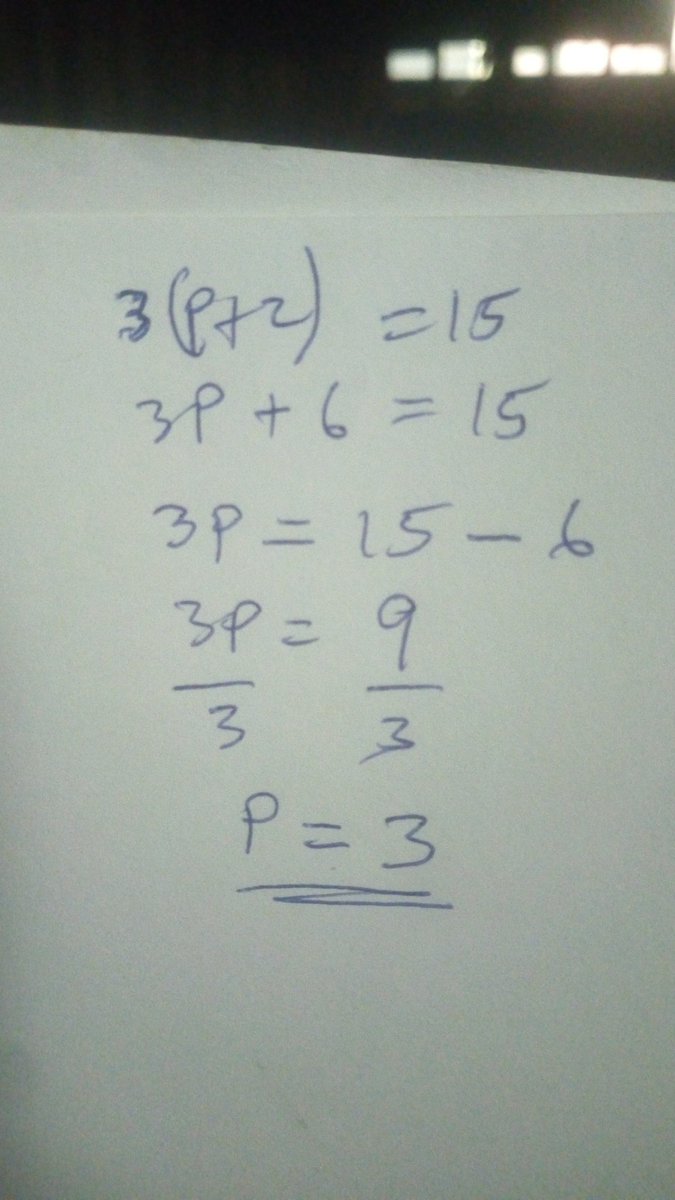 3(p+2) = 15
3p + 6 = 15
3p = 15 - 6
3p = 9
3 3
p = 3